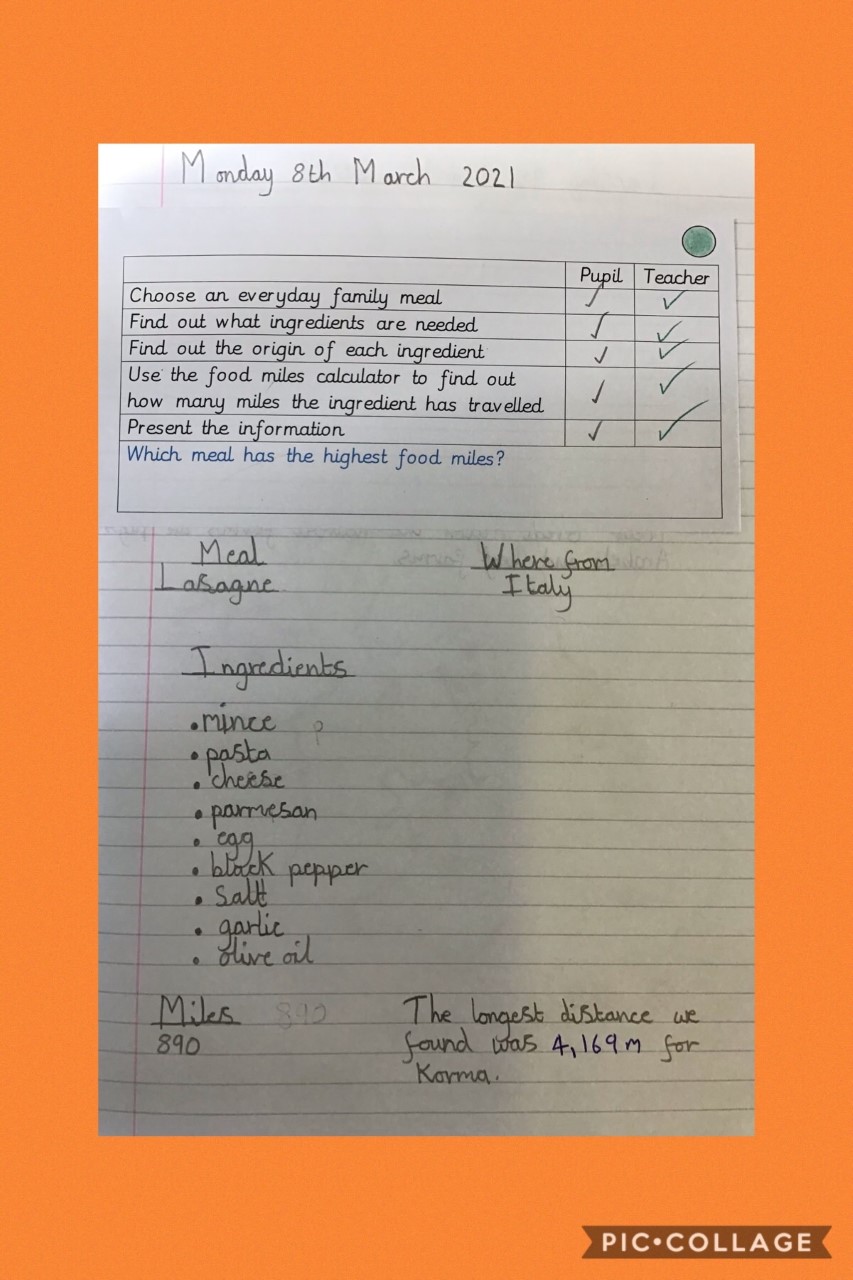 Monday 8th March 2021
Pupil Teacher
Choose an everyday family meal
Find out what ingredients are needed
Find out the origin of each ingredient
Use the food miles calculator to find out
how many miles the ingredient has travelled
Present the information
Which meal has the highest food miles?
Meal Where from
Lasagne Italy
Ingredients
• mince
• pasta
• cheese
• parmesan
• egg
• black pepper
• Salt
• garlic
• olive oil
Miles 890 The longest distance we
890 found was 4,169m for
Korma.
PIC•COLLAGE